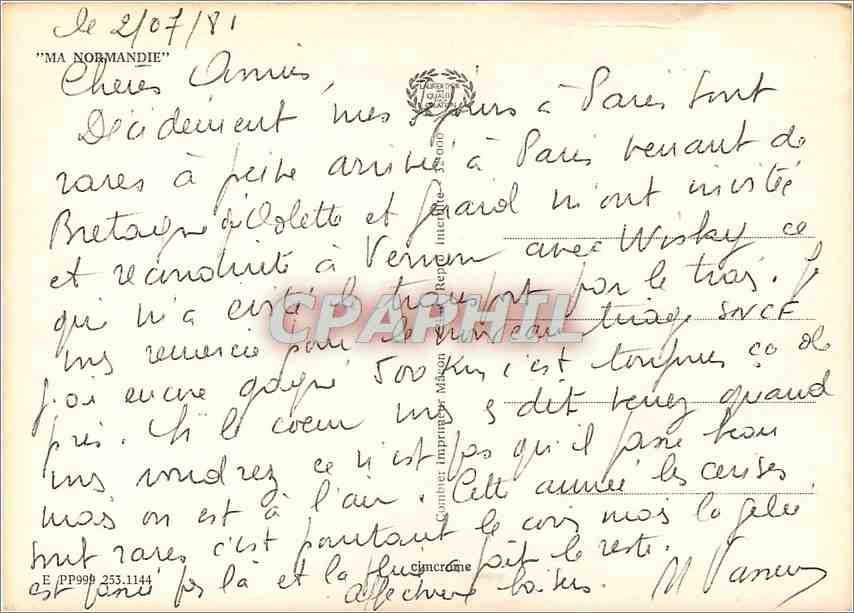 le 2/07/81
"MA NORMANDIE"
Chères Amies,
LAURIER D'OR
QUALITÉ
Décidément, mes séjours à Paris sont
rares à peine arrivée à Paris venant de
Bretagne Odette et Gérard m'ont invitée
et reconduite à Vernon avec Wisky ce
qui m'a évité le transport par le train. Je
vous remercie pour le morceau tirage SNCF
j'ai encore gagné 500 Km c'est toujours ça de
pris. Si le coeur vous dit venez quand
vous voudrez ce n'est pas qu'il fasse beau
mais on est à l'air. Cette année les cerises
sont rares c'est pourtant le coin mais la gelée
est passée par là et la pluie a fait le reste.
affectueux baisers.
CPAPHIL
Combier Imprimeur Mâcon
Reprod. Interdite
cimcrome
E PP999 253.1144